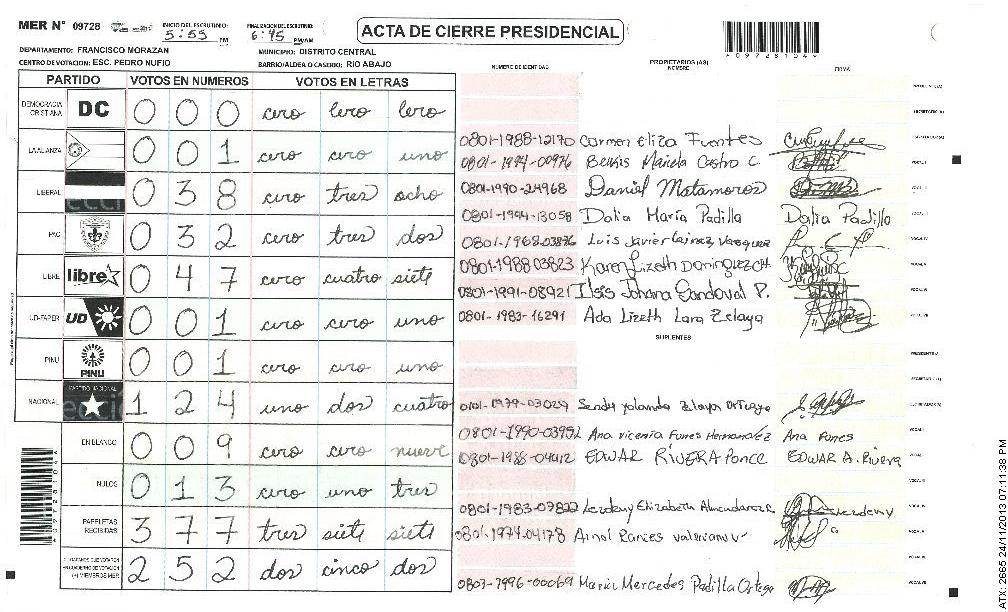 MER N° 09728
INICIO DEL ESCRUTINIO: 5:55 PM
FINALIZACION DEL ESCRUTINIO: 6:45 PM/AM
ACTA DE CIERRE PRESIDENCIAL
DEPARTAMENTO: FRANCISCO MORAZAN
MUNICIPIO: DISTRITO CENTRAL
CENTRO DE VOTACION: ESC. PEDRO NUFIO
BARRIO/ALDEA O CASERIO: RIO ABAJO
PARTIDO VOTOS EN NUMEROS VOTOS EN LETRAS
DEMOCRACIA CRISTIANA DC 0 0 0 cero cero cero
LA ALIANZA 0 0 1 cero cero uno
LIBERAL 0 3 8 cero tres ocho
PAC 0 3 2 cero tres dos
LIBRE libre 0 4 7 cero cuatro siete
UD-FAPER UD 0 0 1 cero cero uno
PINU PINU 0 0 1 cero cero uno
NACIONAL PARTIDO NACIONAL 1 2 4 uno dos cuatro
EN BLANCO 0 0 9 cero cero nueve
NULOS 0 1 3 cero uno tres
PAPELETAS RECIBIDAS 3 7 7 tres siete siete
(+) MIEMBROS MER 2 5 2 dos cinco dos
NUMERO DE IDENTIDAD
PROPIETARIOS (AS)
NOMBRE
FIRMA
0801-1988-12170 Carmen Eliza Fuentes
0801-1994-00976 Bessis Mariela Castro C.
0801-1990-24968 Daniel Matamoros
0801-1994-13058 Dalia María Padilla Dalia Padilla
0801-1968-03876 Luis Javier Lainez Vasquez
0801-1988 03823 Karen Lizeth Dominguez
0801-1991-08921 Ilsis Johana Sandoval P.
0801-1983-16291 Ada Lizeth Lara Zelaya
SUPLENTES
0101-1979-03029 Sendy Yolanda Zelaya Ortega
0801-1990-03952 Ana Vicenta Funes Hernandez Ana Funes
0801-1988-04412 EDWAR RIVERA Ponce EDWAR A. Rivera
0801-1983-07822 Lezdeny Elizabeth Almendarez
0801-1974-04178
0807-1996-00069 Maria Mercedes Padilla Ortega
A0972810A4
ATX, 2665 24/11/2013 07:11:38 PM